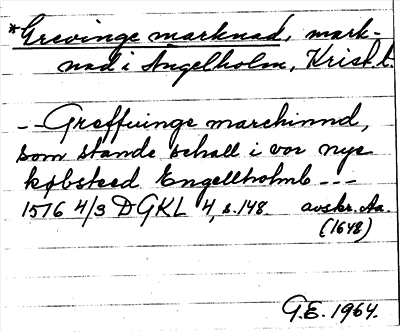 *Grevinge marknad, mark-
nad i Ängelholm, Krist.l.
-- Greffuinge marchinnd,
som stande schall i vor nye
købsteed Engellholmb ---
1576 4/3 DGKL 4, s. 148. avskr. Aa.
(1648)
G.E. 1964.